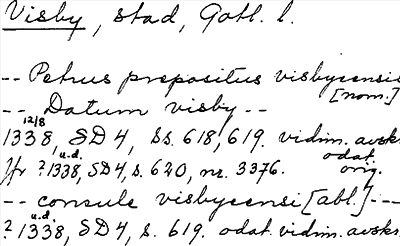 Visby, stad, Gotl. l.
-- Petrus prepositus visbycensis
[nom.]
-- Datum visby --
12/8
1338, SD 4, ss. 618, 619. vidim. avskr.
u.d. odat.
Jfr ? 1338, SD 4, s. 620, nr. 3376. orig.
-- consule visbycensi [abl.] --
u.d.
? 1338, SD 4, s. 619. odat. vidim. avskr.